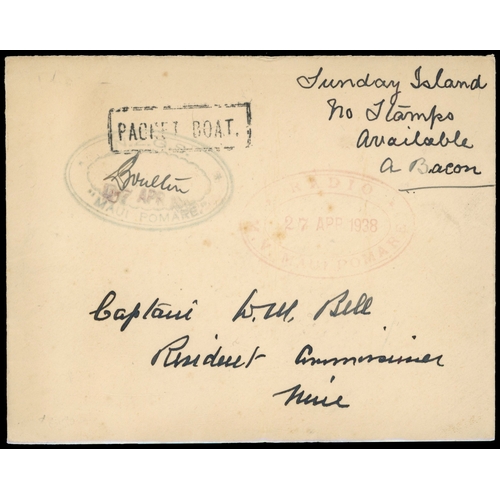 Sunday Island
No Stamps
Available
A Bacon
PACKET BOAT.
Boulton
27 APR
"MAUI POMARE"
RADIO
27 APR 1938
M.V. MAUI POMARE
Captain W. M. Bell
Resident Commissioner
Niue